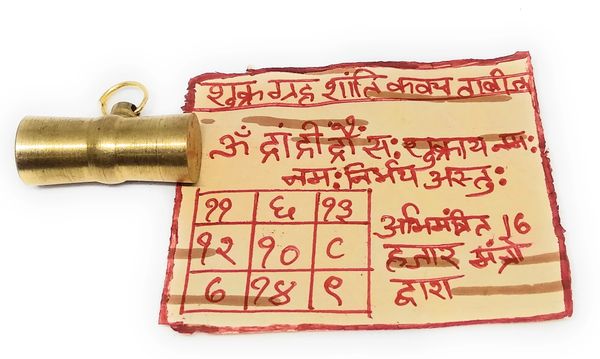 शुक्र ग्रह शांति कवच ताबीज
ॐ द्रां द्रीं द्रौं सः शुक्राय नमः
नमः निर्भय अस्तुः
११ ६ १३
१२ १० ८
७ १४ ९
अभिमंत्रित 16
हजार मंत्रो
द्वारा